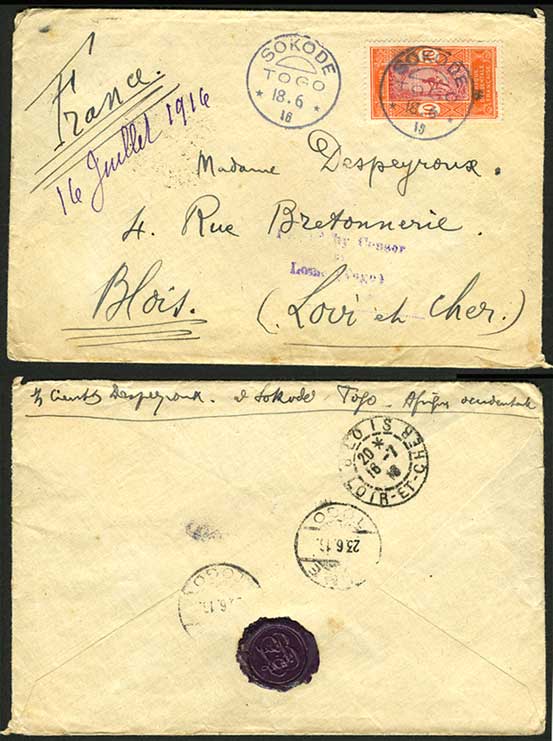 France.
16 Juillet 1916
SOKODE
TOGO
* 18.6 *
16
SOKODE
18.6
Madame Despeyroux.
4. Rue Bretonnerie.
by Censor
Blois. (Loir et Cher.)
Despeyroux. à Sokodé Togo. Afrique occidentale
BLOIS
20 *
16-7
16
LOIR-ET-CHER
TOGO
23.6.16
TOGO
.6.16